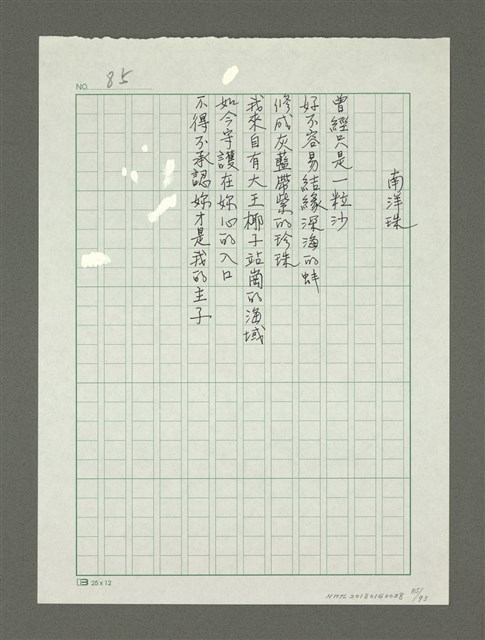 NO. 85
南洋珠
曾經只是一粒沙
好不容易結緣深海的蚌
修成灰藍帶紫的珍珠
我來自有大王椰子站崗的海域
如今守護在妳心的入口
不得不承認妳才是我的主子
25 x 12
NMTL20180160028
85/93